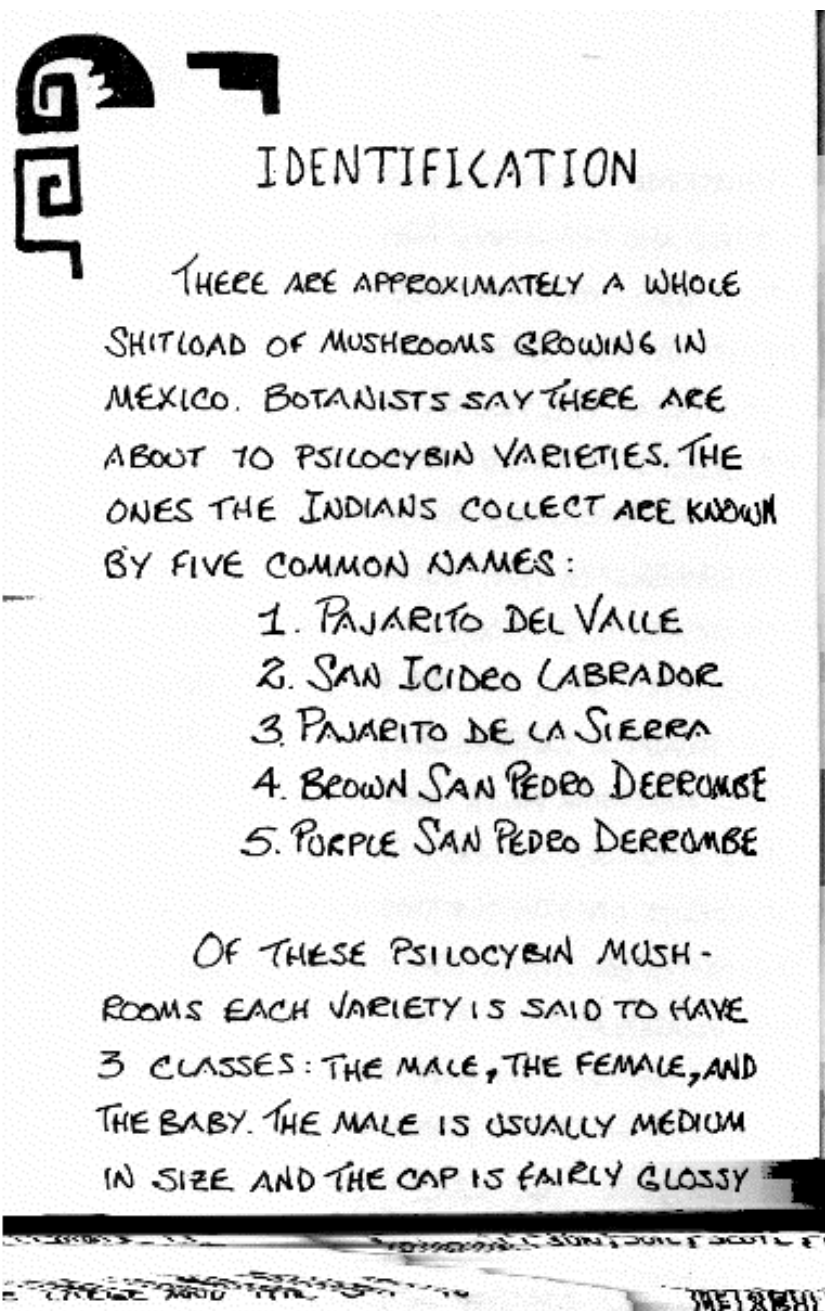 IDENTIFICATION
THERE ARE APPROXIMATELY A WHOLE
SHITLOAD OF MUSHROOMS GROWING IN
MEXICO. BOTANISTS SAY THERE ARE
ABOUT 70 PSILOCYBIN VARIETIES. THE
ONES THE INDIANS COLLECT ARE KNOWN
BY FIVE COMMON NAMES:
1. PAJARITO DEL VALLE
2. SAN ICIDRO LABRADOR
3. PAJARITO DE LA SIERRA
4. BROWN SAN PEDRO DERRUMBE
5. PURPLE SAN PEDRO DERRUMBE
OF THESE PSILOCYBIN MUSH-
ROOMS EACH VARIETY IS SAID TO HAVE
3 CLASSES: THE MALE, THE FEMALE, AND
THE BABY. THE MALE IS USUALLY MEDIUM
IN SIZE AND THE CAP IS FAIRLY GLOSSY